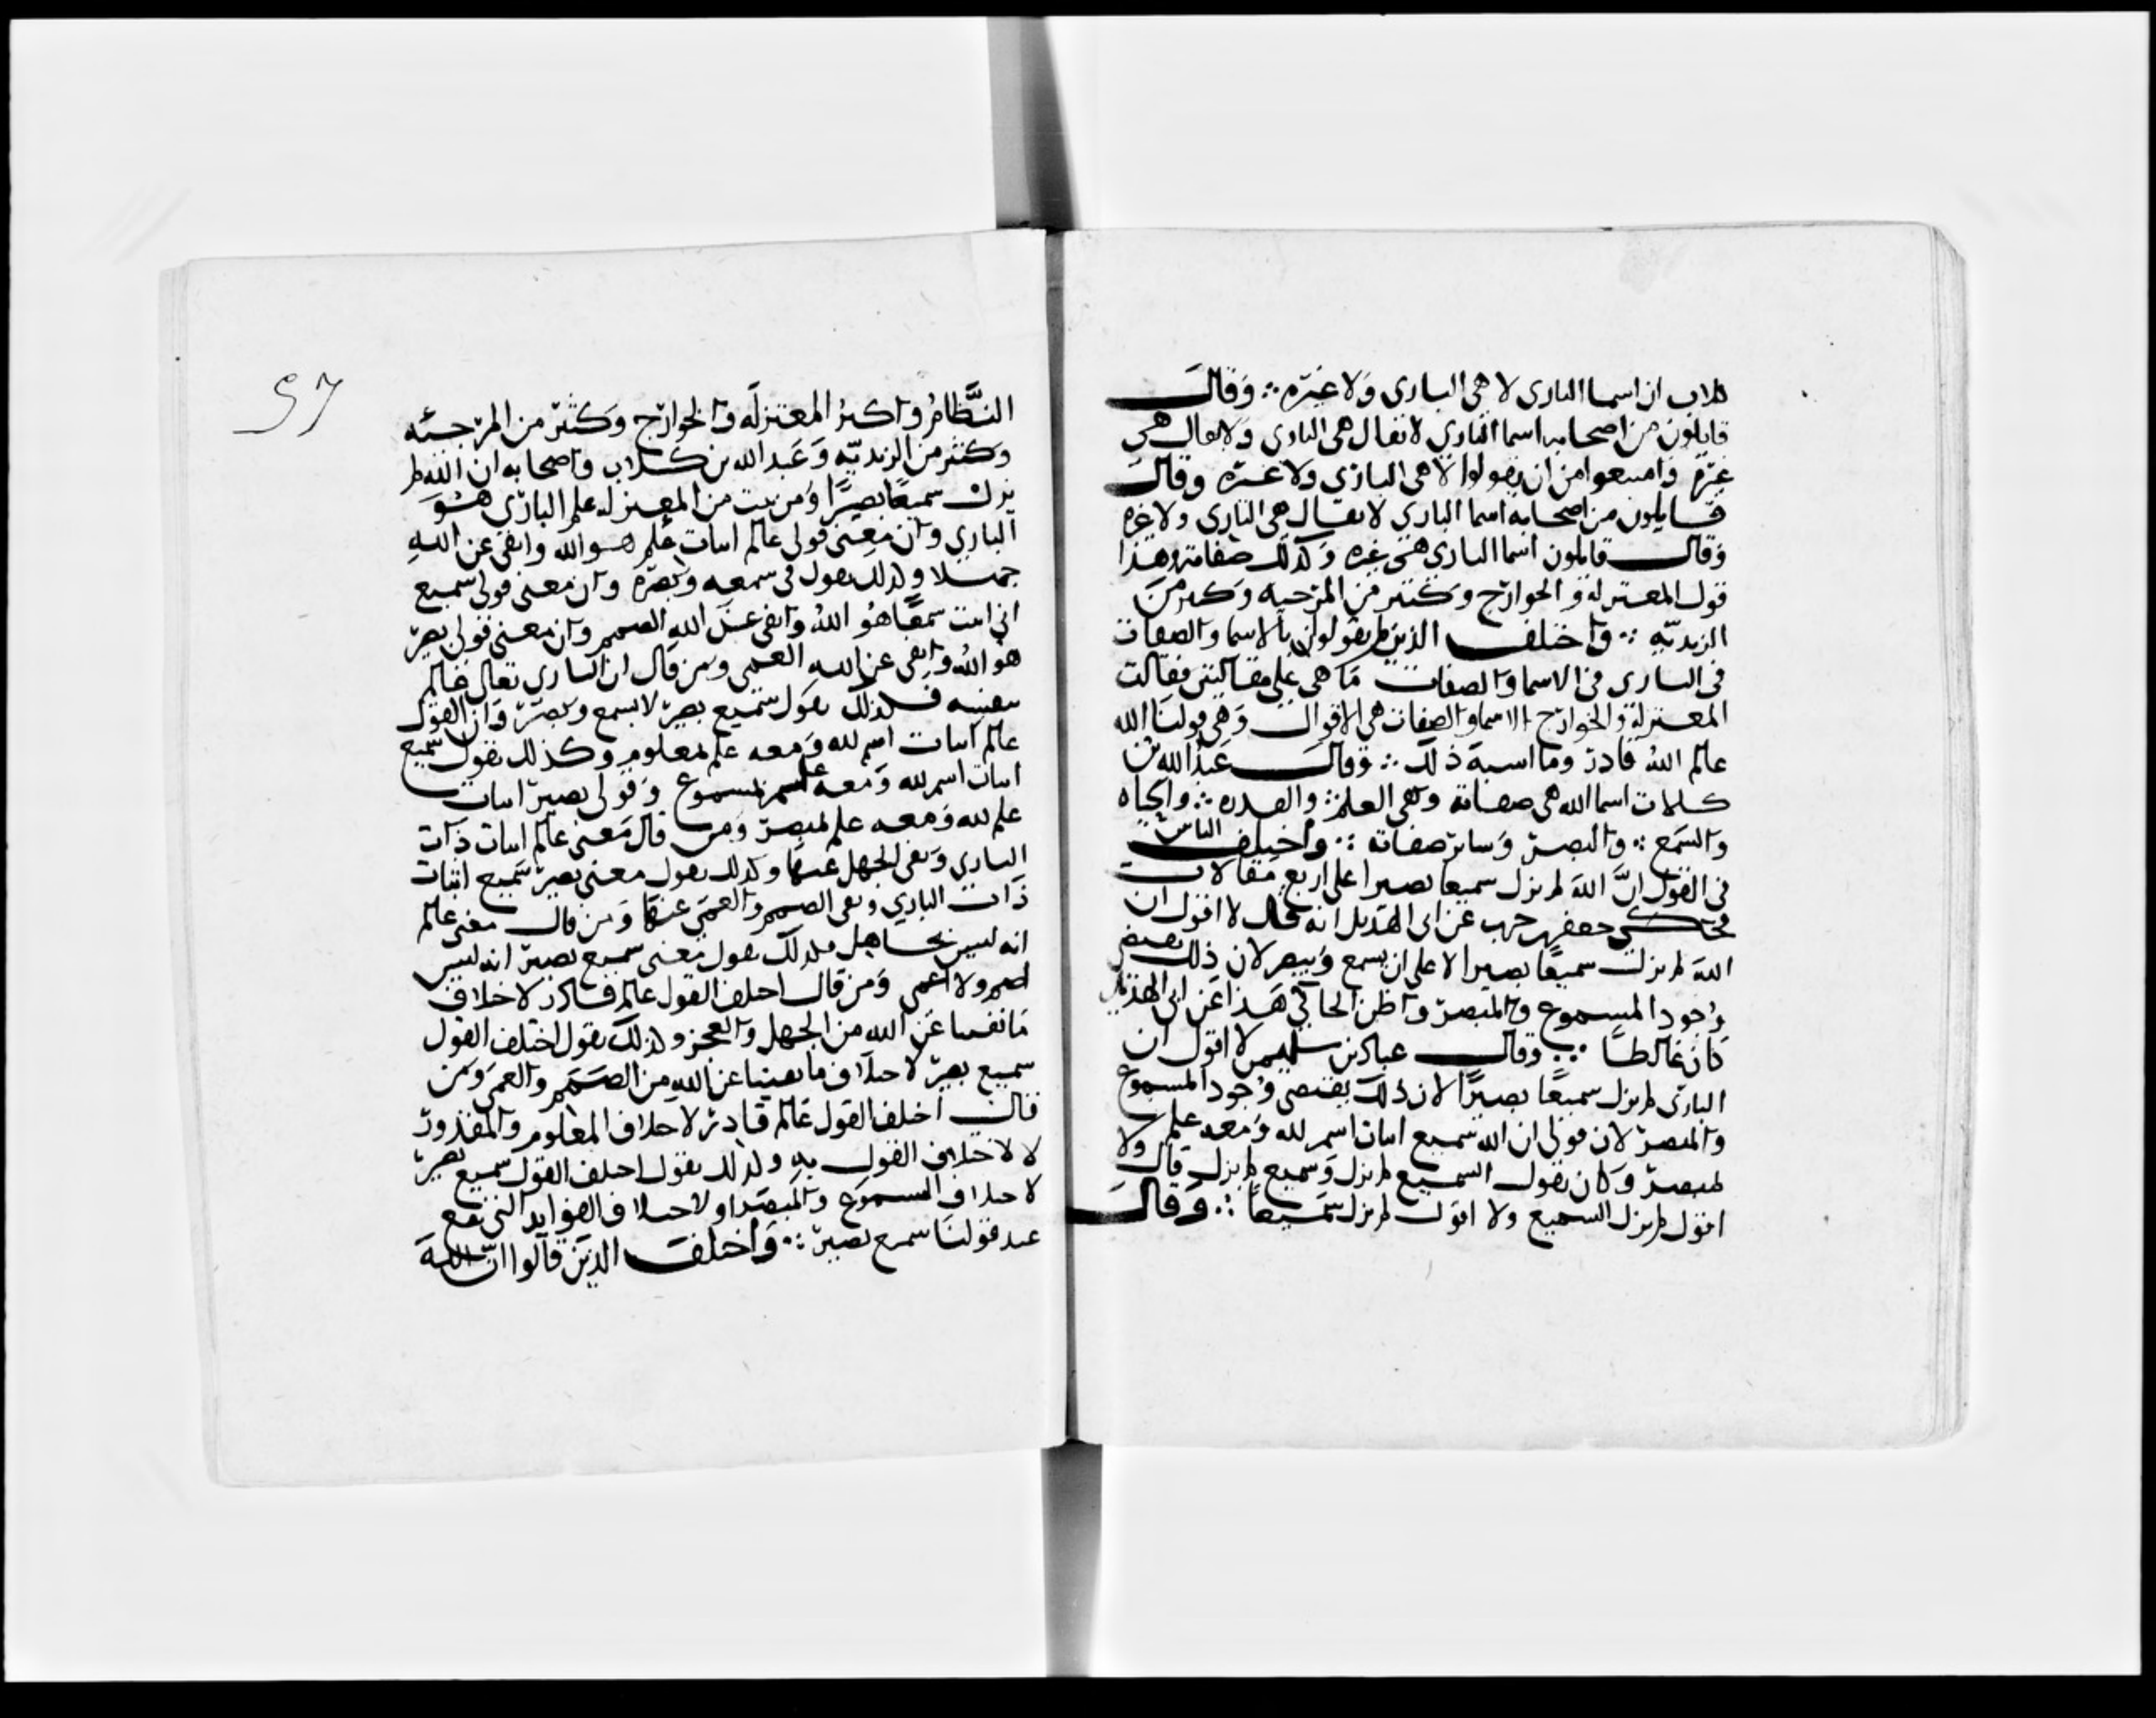 كلاب ان اسما البارى لا هى البارى ولا غيره ∴ وقال
قايلون من اصحابه اسما البارى لا يقال هى البارى ولا يقال هى
غيره وامتنعوا من ان يقولوا لا هى البارى ولا غيره وقال
قايلون من اصحابه اسما البارى لا يقال هى البارى ولا غيره
وقال قايلون اسما البارى هى غيره وكذلك صفاته وهذا
قول المعتزلة والخوارج وكثير من المرجيه وكثير من
الزيديه ∴ واختلف الذين لم يقولوا بالاسما والصفات
فى البارى فى الاسما والصفات ما هى على مقالتين فقالت
المعتزلة والخوارج الاسما والصفات هى الاقوال وهى قولنا الله
عالم الله قادر وما اشبه ذلك ∴ وقال عبد الله بن
كلاب اسما الله هى صفاته وهى العلم ∴ والقدره ∴ والحياه
والسمع ∴ والبصر وساير صفاته ∴ واختلف الناس
فى القول ان الله لم يزل سميعا بصيرا على اربع مقالات
فحكى جعفر بن حرب عن ابى الهذيل انه قال لا اقول ان
الله لم يزل سميعا بصيرا لا على ان يسمع ويبصر لان ذلك يقتضى
وجود المسموع والمبصر واظن الحاكي هذا عن ابى الهذيل
كان غالطا ∴ وقال عباد بن سليمن لا اقول ان
البارى لم يزل سميعا بصيرا لان ذلك يقتضى وجود المسموع
والمبصر لان قولى ان الله سميع اثبات اسم لله ومعه علم
لمبصر وكان يقول السميع لم يزل وسميع لم يزل قال ولا
اقول لم يزل السميع ولا اقول لم يزل سميعا ∴ وقال
57
النظام واكثر المعتزله والخوارج وكثير من المرجئه
وكثير من الزيديه وعبد الله بن كلاب واصحابه ان الله لم
يزل سميعا بصيرا ومن ثبت من المعتزله علم البارى هو
البارى وان معنى قولى عالم اثبات علم هو الله وانفى عن الله
جهلا وكذلك يقول فى سمعه وبصره وان معنى قولى سميع
انى اثبت سمعا هو الله وانفى عن الله الصمم وان معنى قولى بصير
هو الله وانفى عن الله العمى ومن قال ان البارى تعالى عالم
بنفسه فكذلك يقول سميع بصير لا بسمع وبصر وان القول
عالم اثبات اسم لله ومعه علم لمعلوم وكذلك يقول سميع
اثبات اسم لله ومعه علم لمسموع وقولى بصير اثبات
علم لله ومعه علم لمبصر ومن قال معنى عالم اثبات ذات
البارى ونفى الجهل عنها وكذلك يقول معنى بصير سميع اثبات
ذات البارى ونفى الصمم والعمى عنها ومن قال معنى عالم
انه ليس بجاهل فكذلك يقول معنى سميع بصير انه ليس
اصم ولا اعمى ومن قال اختلف القول عالم قادر لاختلاف
ما نفينا عن الله من الجهل والعجز وكذلك يقول اختلف القول
سميع بصير لاختلاف ما نفينا عن الله من الصمم والعمى ومن
قال اختلف القول عالم قادر لاختلاف المعلوم والمقدور
لا لاختلاف القول به وكذلك يقول اختلف القول سميع بصير
لاختلاف المسموع والمبصر او لاختلاف الفوايد التى تقع
عند قولنا سميع بصير ∴ واختلف الذين قالوا ان الله